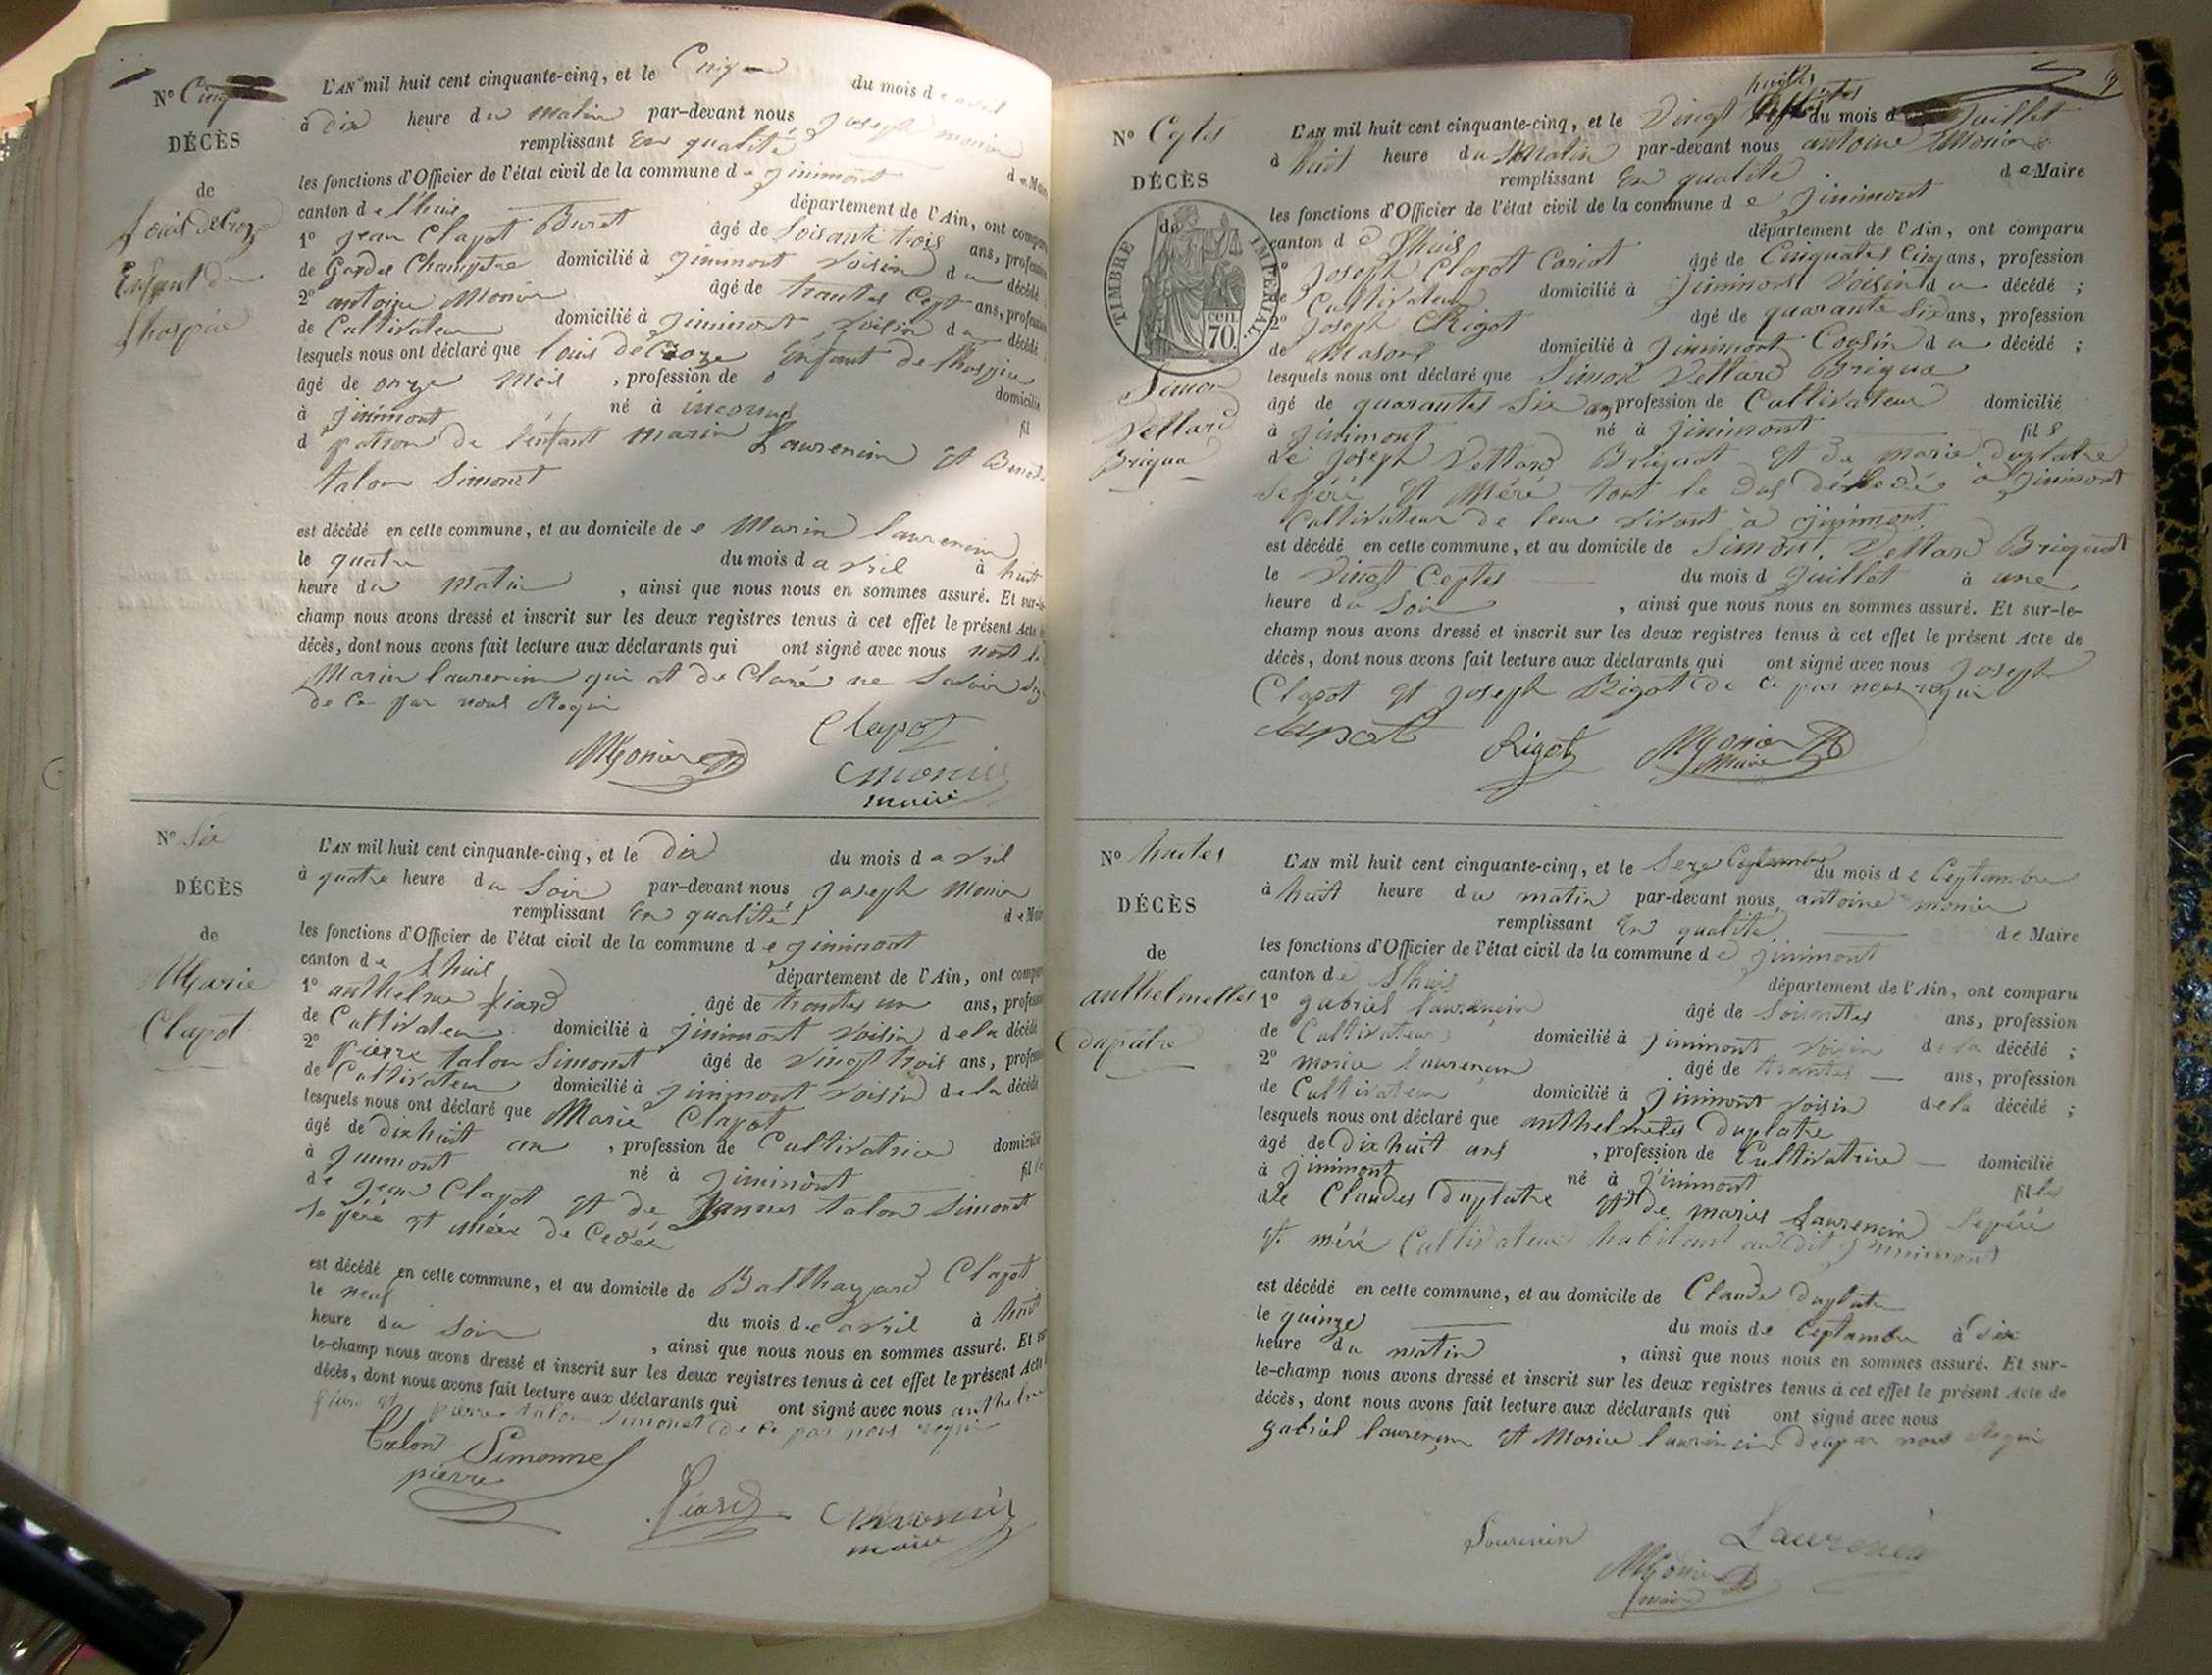 N° Cinq
DÉCÈS
de
Louis deCroze
Enfant de
lhospice
L'AN mil huit cent cinquante-cinq, et le Cinq du mois d e avril
à dix heure du matin par-devant nous Joseph monier
remplissant En qualité d e Maire
les fonctions d'Officier de l'état civil de la commune d e jinimont
canton d e lhuis département de l'Ain, ont comparu
1° jean Clapot Buret âgé de Soisante trois ans, profession
de Gardes Champetre domicilié à jinimont voisin du décédé
2° antoine Monier âgé de trantes Cept ans, profession
de Cultivateur domicilié à jinimont voisin du décédé
lesquels nous ont déclaré que louis deCroze Enfant de lhospice
âgé de onze Mois , profession de domicilié
à jinimont né à inconnus fil
d patron de lenfant marin Laurencin et
talon Simonet
est décédé en cette commune, et au domicile de e Marin laurencin
le quatre du mois d avril à huit
heure du matin , ainsi que nous nous en sommes assuré. Et sur-le-
champ nous avons dressé et inscrit sur les deux registres tenus à cet effet le présent Acte
décès, dont nous avons fait lecture aux déclarants qui ont signé avec nous
Marin laurencin qui at de Claré ne Savoir
de Ce par nous Requi
Clapot
Monier
monier
maire
N° Six
DÉCÈS
de
Marie
Clapot
L'AN mil huit cent cinquante-cinq, et le dix du mois d avril
à quatre heure du Soir par-devant nous Joseph Monier
remplissant En qualité d e Maire
les fonctions d'Officier de l'état civil de la commune d e jinimont
canton d e Lhuis département de l'Ain, ont comparu
1° anthelme âgé de trantes un ans, profession
de Cultivateur domicilié à jinimont voisin de la décédé
2° pierre talon Simonet âgé de vingt trois ans, profession
de Cultivateur domicilié à jinimont voisin de la décédé
lesquels nous ont déclaré que Marie Clapot
âgé de dix huit an , profession de Cultivatrice domicilié
à jinimont né à jinimont fil le
de jean Clapot et de Jannes talon Simonet
Se père et mère de Cedée
est décédé en cette commune, et au domicile de Balthazard Clapot
le neuf du mois d e avril à huit
heure du Soir , ainsi que nous nous en sommes assuré. Et sur-
le-champ nous avons dressé et inscrit sur les deux registres tenus à cet effet le présent Acte
décès, dont nous avons fait lecture aux déclarants qui ont signé avec nous anthelme
et pierre talon Simonet de Ce par nous requi
Talon Simonnet
pierre
monier
maire
N° Ceptes
DÉCÈS
de
TIMBRE IMPERIAL
70 cen.
Simon
Vettard
Briqua
L'AN mil huit cent cinquante-cinq, et le Vingt huites du mois d Juillet
à huit heure du Matin par-devant nous antoine Monier
remplissant En qualité d e Maire
les fonctions d'Officier de l'état civil de la commune d e jinimont
canton d e Lhuis département de l'Ain, ont comparu
1° Joseph Clapot Cariot âgé de Cinquates Cinq ans, profession
de Cultivateur domicilié à jinimont Voisin du décédé ;
2° Joseph Rigot âgé de quarante Six ans, profession
de Mason domicilié à jinimont Cousin du décédé ;
lesquels nous ont déclaré que Simon Vettard Briqua
âgé de quarantes Six an profession de Cultivateur domicilié
à jinimont né à jinimont fil s
de Joseph Vettard Briquat et de marie duplatre
Se péré et Méré tout le Dus décedé à jinimont
Cultivateur de leur vivant à jinimont
est décédé en cette commune, et au domicile de Simont Vettard Briquat
le Vingt Ceptes du mois d Juillet à une
heure du Soir , ainsi que nous nous en sommes assuré. Et sur-le-
champ nous avons dressé et inscrit sur les deux registres tenus à cet effet le présent Acte de
décès, dont nous avons fait lecture aux déclarants qui ont signé avec nous Joseph
Clapot et Joseph Rigot de Ce par nous requi
Clapot Rigot Monier
Maire
N° huites
DÉCÈS
de
anthelmettes
duplatre
L'AN mil huit cent cinquante-cinq, et le Seze Ceptembre du mois d e Ceptambre
à huit heure du matin par-devant nous antoine monier
remplissant En qualité d e Maire
les fonctions d'Officier de l'état civil de la commune d e jinimont
canton d e Lhuis département de l'Ain, ont comparu
1° gabriel laurencin âgé de Soisantes ans, profession
de Cultivateur domicilié à jinimont voisin de la décédé ;
2° morice laurencin âgé de trantes ans, profession
de Cultivateur domicilié à jinimont voisin de la décédé ;
lesquels nous ont déclaré que anthelmetes duplatre
âgé de dix huit ans , profession de Cultivatrice domicilié
à jinimont né à jinimont fil les
de Claudes duplatre et de maries Laurencin Se péré
et méré Cultivateur habitant au dit jinimont
est décédé en cette commune, et au domicile de Claude duplatre
le quinze du mois de Ceptambre à six
heure du matin , ainsi que nous nous en sommes assuré. Et sur-
le-champ nous avons dressé et inscrit sur les deux registres tenus à cet effet le présent Acte de
décès, dont nous avons fait lecture aux déclarants qui ont signé avec nous
gabriel laurencin et Morice laurencin de Ce par nous Requi
Laurencin
Monier
maire